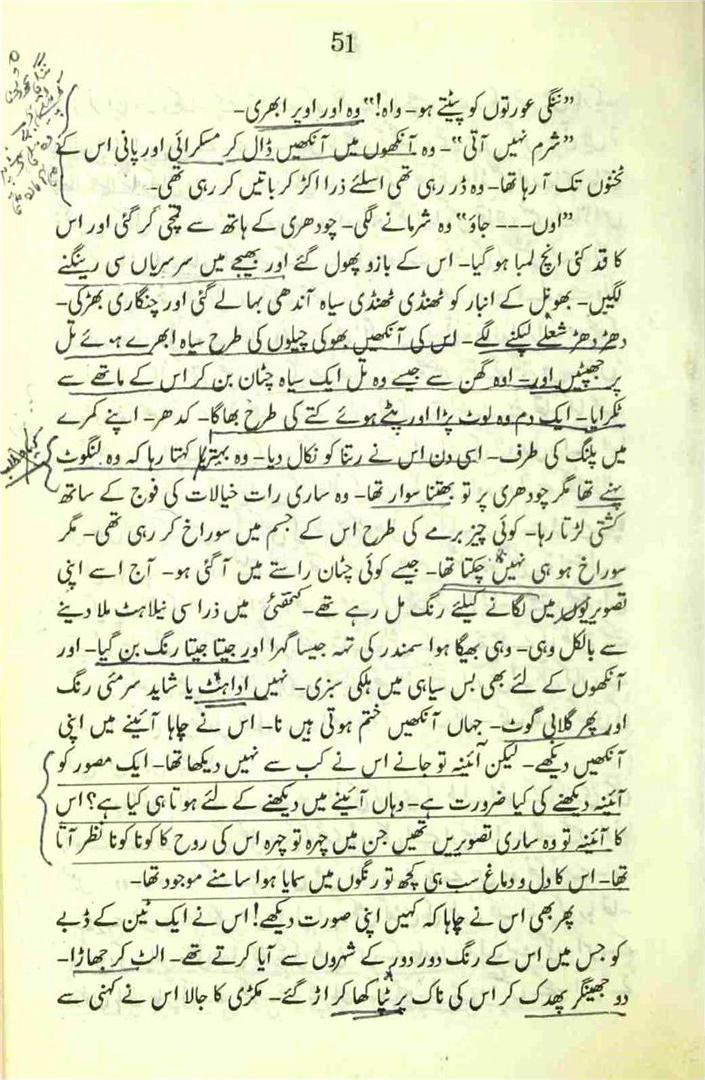 51
”ننگی عورتوں کو پیٹتے ہو۔ واہ!“ وہ اور اوپر ابھری۔
”شرم نہیں آتی“۔ وہ آنکھوں میں آنکھیں ڈال کر مسکرائی اور پانی اس کے
ٹخنوں تک آ رہا تھا۔ وہ ڈر رہی تھی اسلئے ذرا اکڑ کر باتیں کر رہی تھی۔
”اوں--- جاؤ“ وہ شرمانے لگی۔ چودھری کے ہاتھ سے قمچی گر گئی اور اس
کا قد کئی انچ لمبا ہو گیا۔ اس کے بازو پھول گئے اور بھیجے میں سرسریاں سی رینگنے
لگیں۔ بھوبل کے انبار کو ٹھنڈی ٹھنڈی سیاہ آندھی بہا لے گئی اور چنگاری بھڑکی۔
دھڑ دھڑ شعلے لپکنے لگے۔ اس کی آنکھیں بھوکی چیلوں کی طرح سیاہ ابھرے ہوئے تل
پر جھپٹیں اور۔ اوہ گھن سے جیسے وہ تل ایک سیاہ چٹان بن کر اس کے ماتھے سے
ٹکرایا۔ ایک دم وہ لوٹ پڑا اور پٹے ہوئے کتے کی طرح بھاگا۔ کدھر۔ اپنے کمرے
میں پلنگ کی طرف۔ اسی دن اس نے رتنا کو نکال دیا۔ وہ بہتیرا کہتا رہا کہ وہ لنگوٹ
پہنے تھا مگر چودھری پر تو بھتنا سوار تھا۔ وہ ساری رات خیالات کی فوج کے ساتھ
کشتی لڑتا رہا۔ کوئی چیز برمے کی طرح اس کے جسم میں سوراخ کر رہی تھی۔ مگر
سوراخ ہو ہی نہیں چکتا تھا۔ جیسے کوئی چٹان راستے میں آ گئی ہو۔ آج اسے اپنی
تصویروں میں لگانے کیلئے رنگ مل رہے تھے۔ کتھئی میں ذرا سی نیلاہٹ ملا دینے
سے بالکل وہی۔ وہی بھیگا ہوا سمندر کی تہہ جیسا گہرا اور جیتا جیتا رنگ بن گیا۔ اور
آنکھوں کے لئے بھی بس سیاہی میں ہلکی سبزی۔ نہیں اداہٹ یا شاید سرمئی رنگ
اور پھر گلابی گوٹ۔ جہاں آنکھیں ختم ہوتی ہیں نا۔ اس نے چاہا آئینے میں اپنی
آنکھیں دیکھے۔ لیکن آئینہ تو جانے اس نے کب سے نہیں دیکھا تھا۔ ایک مصور کو
آئینہ دیکھنے کی کیا ضرورت ہے۔ وہاں آئینے میں دیکھنے کے لئے ہوتا ہی کیا ہے؟ اس
کا آئینہ تو وہ ساری تصویریں تھیں جن میں چہرہ تو چہرہ اس کی روح کا کونا کونا نظر آتا
تھا۔ اس کا دل و دماغ سب ہی کچھ تو رنگوں میں سمایا ہوا سامنے موجود تھا۔
پھر بھی اس نے چاہا کہ کہیں اپنی صورت دیکھے! اس نے ایک ٹین کے ڈبے
کو جس میں اس کے رنگ دور دور کے شہروں سے آیا کرتے تھے۔ الٹ کر جھاڑا۔
دو جھینگر پھدک کر اس کی ناک پر ٹپا کھا کر اڑ گئے۔ مکڑی کا جالا اس نے کہنی سے